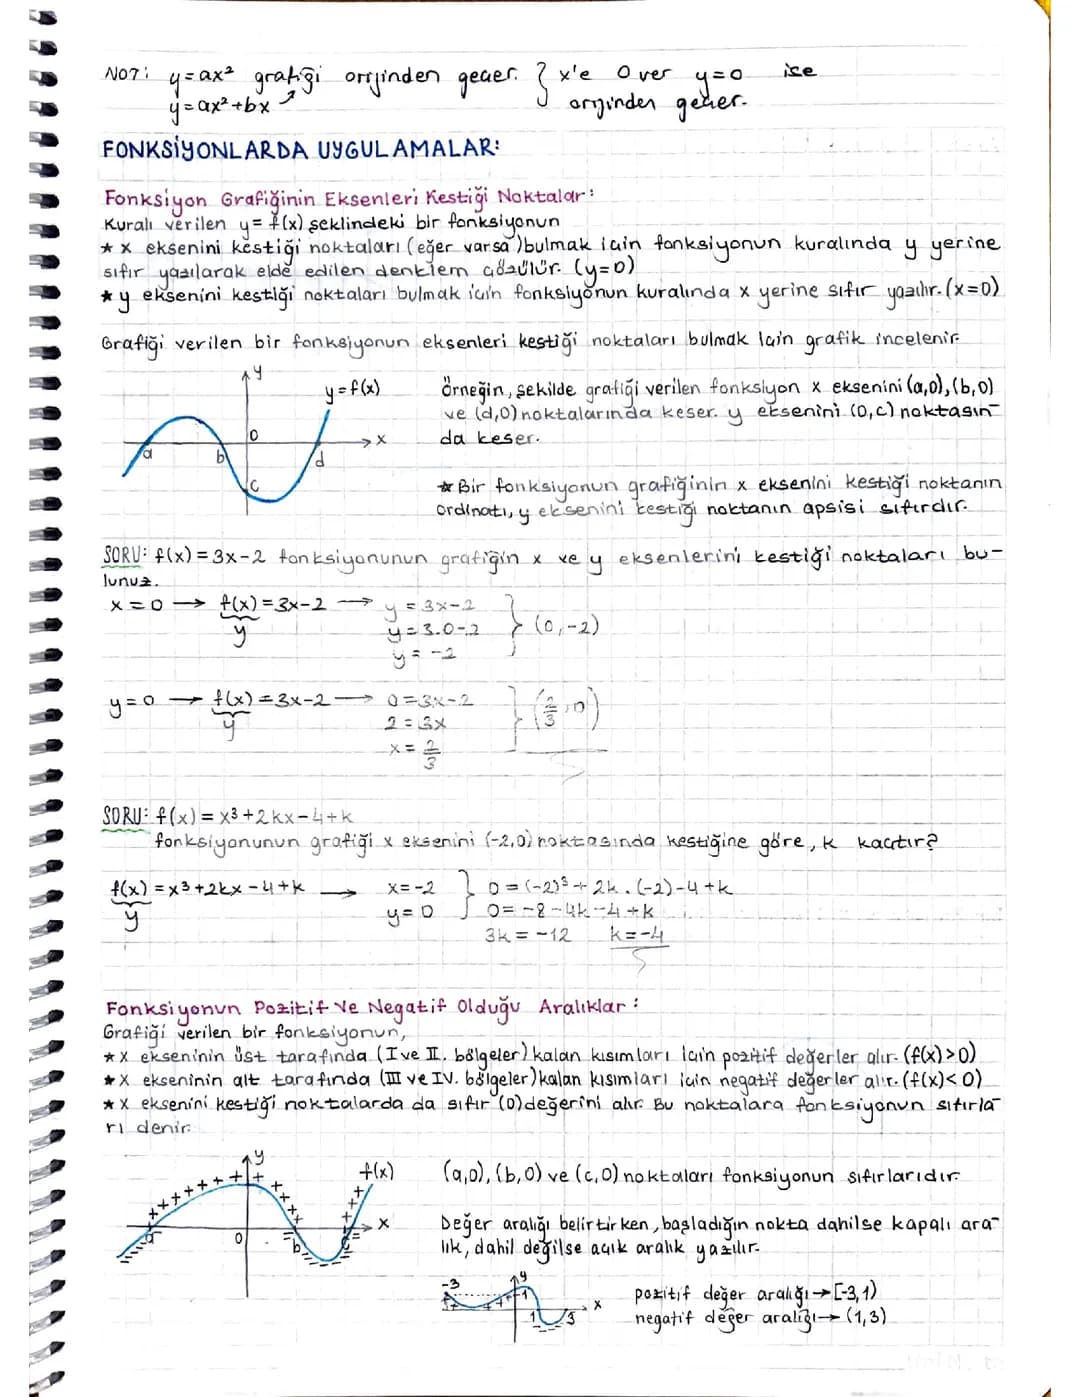 NOT: y=ax² grafiği orijinden geçer. } x'e 0 ver y=0 ise
y=ax²+bx ↗ orijinden geçer.
FONKSİYONLARDA UYGULAMALAR:
Fonksiyon Grafiğinin Eksenleri Kestiği Noktalar:
Kuralı verilen y=f(x) şeklindeki bir fonksiyonun
★ x eksenini kestiği noktaları (eğer varsa) bulmak için fonksiyonun kuralında y yerine
sıfır yazılarak elde edilen denklem çözülür. (y=0)
★ y eksenini kestiği noktaları bulmak için fonksiyonun kuralında x yerine sıfır yazılır. (x=0)
Grafiği verilen bir fonksiyonun eksenleri kestiği noktaları bulmak için grafik incelenir.
y
y=f(x)
0
x
a b d
c
Örneğin, şekilde grafiği verilen fonksiyon x eksenini (a,0), (b,0)
ve (d,0) noktalarında keser. y eksenini (0,c) noktasın-
da keser.
★ Bir fonksiyonun grafiğinin x eksenini kestiği noktanın
ordinatı, y eksenini kestiği noktanın apsisi sıfırdır.
SORU: f(x)=3x-2 fonksiyonunun grafiğin x ve y eksenlerini kestiği noktaları bu-
lunuz.
x=0 → f(x)=3x-2 → y=3x-2
y y=3.0-2 } (0,-2)
y=-2
y=0 → f(x)=3x-2 → 0=3x-2
y 2=3x } (2/3,0)
x=2/3
SORU: f(x)=x³+2kx-4+k
fonksiyonunun grafiği x eksenini (-2,0) noktasında kestiğine göre, k kaçtır?
f(x)=x³+2kx-4+k → x=-2 } 0=(-2)³+2k.(-2)-4+k
y y=0 0=-8-4k-4+k
3k=-12 k=-4
Fonksiyonun Pozitif Ve Negatif Olduğu Aralıklar:
Grafiği verilen bir fonksiyonun,
★ x ekseninin üst tarafında (I ve II. bölgeler) kalan kısımları için pozitif değerler alır. (f(x)>0)
★ x ekseninin alt tarafında (III ve IV. bölgeler) kalan kısımları için negatif değerler alır. (f(x)<0)
★ x eksenini kestiği noktalarda da sıfır (0) değerini alır. Bu noktalara fonksiyonun sıfırla-
rı denir.
y
f(x)
x
a 0 b c
(a,0), (b,0) ve (c,0) noktaları fonksiyonun sıfırlarıdır.
Değer aralığı belirtirken, başladığın nokta dahilse kapalı ara-
lık, dahil değilse açık aralık yazılır.
-3 y
x
1 3
pozitif değer aralığı → [-3,1)
negatif değer aralığı → (1,3)